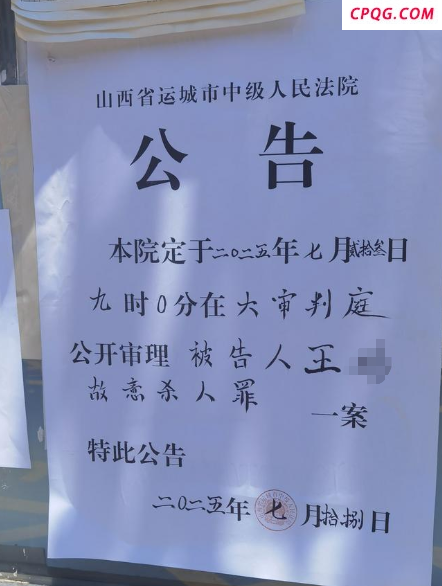 CPQG.COM
山西省运城市中级人民法院
公告
本院定于二〇二五年七月贰拾叁日
九时0分在大审判庭
公开审理被告人王
故意杀人罪
一案
特此公告
二〇二五年七月拾捌日